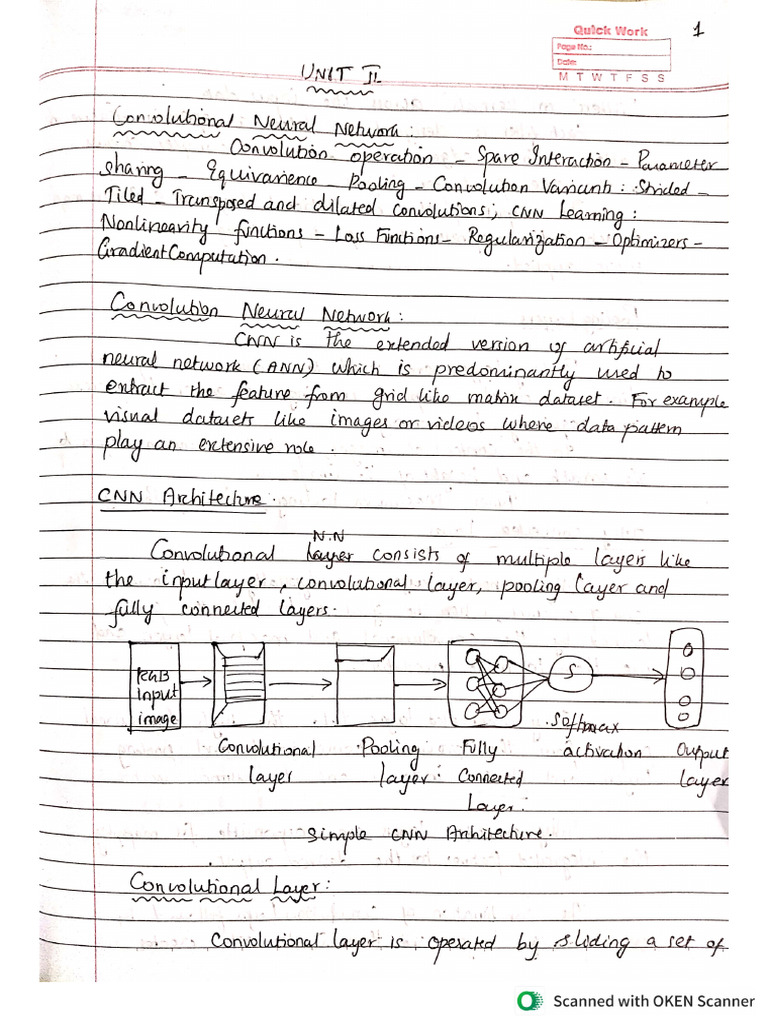 Quick Work
1
Page No.:
Date:
M T W T F S S
UNIT II
Convolutional Neural Network:
Convolution operation - Spare Interaction - Parameter
sharing - Equivarience - Pooling - Convolution Variants: Strided -
Tiled - Transposed and dilated convolutions; CNN Learning:
Nonlinearity functions - Loss Functions - Regularization - Optimizers -
Gradient Computation.
Convolution Neural Network:
CNN is the extended version of artificial
neural network (ANN) which is predominantly used to
extract the feature from grid like matrix dataset. For example
visual datasets like images or videos where data pattern
play an extensive role.
CNN Architecture.
N.N
Convolutional layer consists of multiple layers like
the input layer, convolutional layer, pooling layer and
fully connected layers.
RGB
input
image
S
Softmax
Convolutional Pooling Fully activation Output
layer layer: Connected layer
Layer:
Simple CNN Architecture.
Convolutional Layer:
Convolutional layer is operated by sliding a set of
Scanned with OKEN Scanner